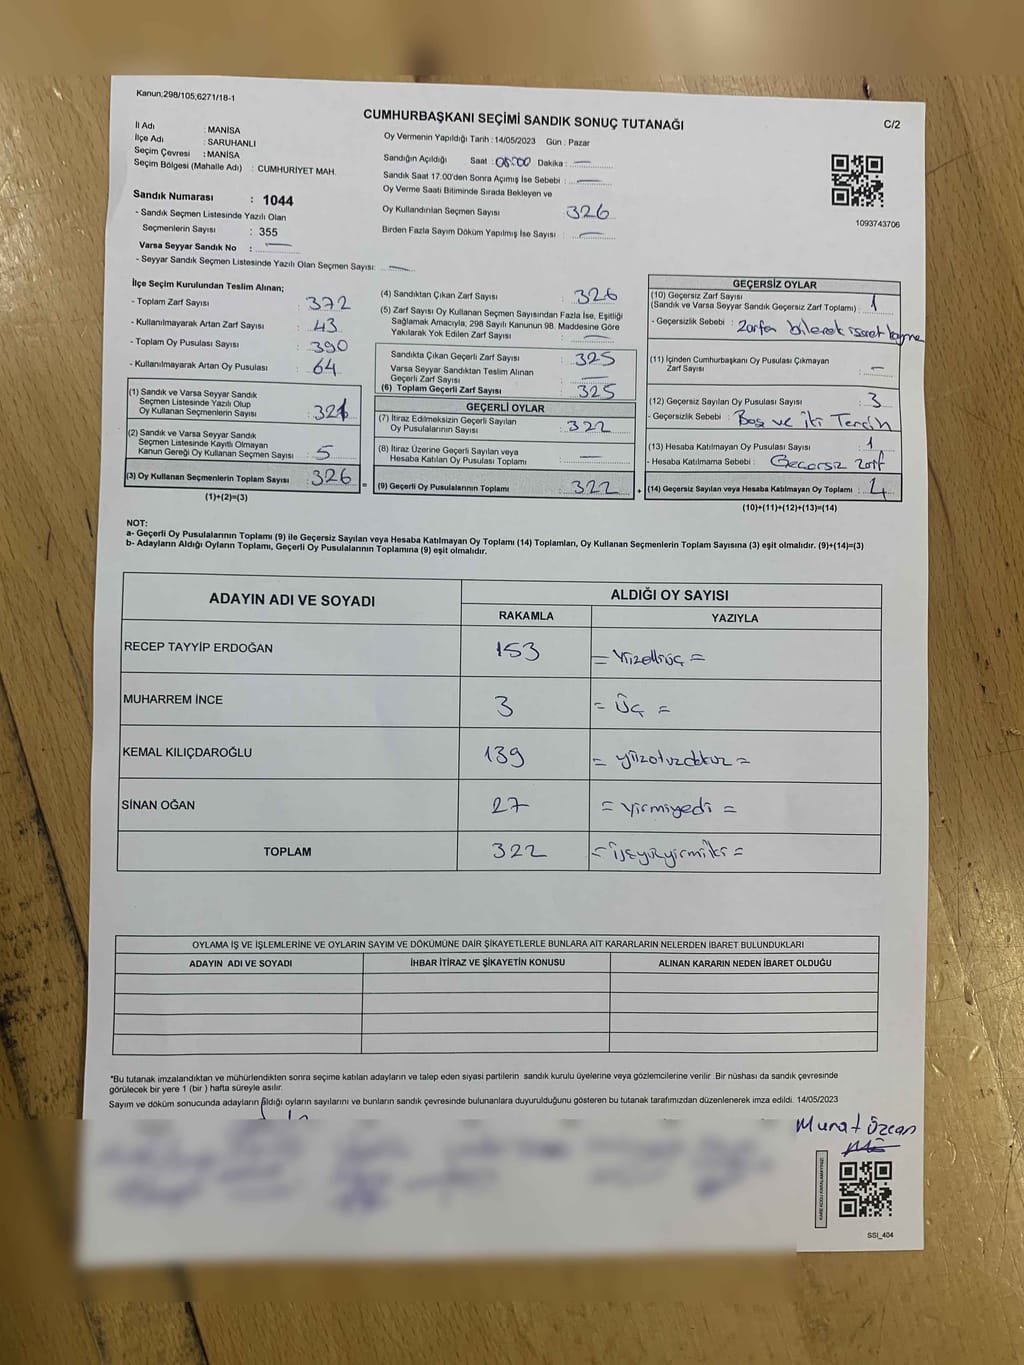 Kanun;298/105;6271/18-1
CUMHURBAŞKANI SEÇİMİ SANDIK SONUÇ TUTANAĞI
C/2
İl Adı : MANİSA
İlçe Adı : SARUHANLI
Seçim Çevresi : MANİSA
Seçim Bölgesi (Mahalle Adı) : CUMHURİYET MAH.
Sandık Numarası : 1044
- Sandık Seçmen Listesinde Yazılı Olan
Seçmenlerin Sayısı : 355
Varsa Seyyar Sandık No : —
- Seyyar Sandık Seçmen Listesinde Yazılı Olan Seçmen Sayısı: —
Oy Vermenin Yapıldığı Tarih : 14/05/2023 Gün : Pazar
Sandığın Açıldığı Saat : 08:00 Dakika : —
Sandık Saat 17.00'den Sonra Açımış İse Sebebi : —
Oy Verme Saati Bitiminde Sırada Bekleyen ve
Oy Kullandırılan Seçmen Sayısı 326
Birden Fazla Sayım Döküm Yapılmış İse Sayısı : —
1093743706
İlçe Seçim Kurulundan Teslim Alınan;
- Toplam Zarf Sayısı : 372
- Kullanılmayarak Artan Zarf Sayısı : 43
- Toplam Oy Pusulası Sayısı : 390
- Kullanılmayarak Artan Oy Pusulası : 64
(1) Sandık ve Varsa Seyyar Sandık
Seçmen Listesinde Yazılı Olup
Oy Kullanan Seçmenlerin Sayısı : 321
(2) Sandık ve Varsa Seyyar Sandık
Seçmen Listesinde Kayıtlı Olmayan
Kanun Gereği Oy Kullanan Seçmen Sayısı : 5
(3) Oy Kullanan Seçmenlerin Toplam Sayısı : 326
(1)+(2)=(3)
(4) Sandıktan Çıkan Zarf Sayısı : 326
(5) Zarf Sayısı Oy Kullanan Seçmen Sayısından Fazla İse, Eşitliği
Sağlamak Amacıyla, 298 Sayılı Kanunun 98. Maddesine Göre
Yakılarak Yok Edilen Zarf Sayısı : —
Sandıkta Çıkan Geçerli Zarf Sayısı : 325
Varsa Seyyar Sandıktan Teslim Alınan
Geçerli Zarf Sayısı : —
(6) Toplam Geçerli Zarf Sayısı : 325
GEÇERLİ OYLAR
(7) İtiraz Edilmeksizin Geçerli Sayılan
Oy Pusulalarının Sayısı : 322
(8) İtiraz Üzerine Geçerli Sayılan veya
Hesaba Katılan Oy Pusulası Toplamı : —
=
(9) Geçerli Oy Pusulalarının Toplamı : 322
+
GEÇERSİZ OYLAR
(10) Geçersiz Zarf Sayısı
(Sandık ve Varsa Seyyar Sandık Geçersiz Zarf Toplamı) : 1
- Geçersizlik Sebebi : Zarfa bilerek işaret koyma
(11) İçinden Cumhurbaşkanı Oy Pusulası Çıkmayan
Zarf Sayısı : —
(12) Geçersiz Sayılan Oy Pusulası Sayısı : 3
- Geçersizlik Sebebi : Boş ve İki Tercih
(13) Hesaba Katılmayan Oy Pusulası Sayısı : 1
- Hesaba Katılmama Sebebi : Geçersiz zarf
(14) Geçersiz Sayılan veya Hesaba Katılmayan Oy Toplamı : 4
(10)+(11)+(12)+(13)=(14)
NOT:
a- Geçerli Oy Pusulalarının Toplamı (9) ile Geçersiz Sayılan veya Hesaba Katılmayan Oy Toplamı (14) Toplamları, Oy Kullanan Seçmenlerin Toplam Sayısına (3) eşit olmalıdır. (9)+(14)=(3)
b- Adayların Aldığı Oyların Toplamı, Geçerli Oy Pusulalarının Toplamına (9) eşit olmalıdır.
ADAYIN ADI VE SOYADI
ALDIĞI OY SAYISI
RAKAMLA YAZIYLA
RECEP TAYYİP ERDOĞAN 153 = Yüzelliüç =
MUHARREM İNCE 3 = Üç =
KEMAL KILIÇDAROĞLU 139 = yüzotuzdokuz =
SİNAN OĞAN 27 = Yirmiyedi =
TOPLAM 322 = üçyüzyirmiiki =
OYLAMA İŞ VE İŞLEMLERİNE VE OYLARIN SAYIM VE DÖKÜMÜNE DAİR ŞİKAYETLERLE BUNLARA AİT KARARLARIN NELERDEN İBARET BULUNDUKLARI
ADAYIN ADI VE SOYADI İHBAR İTİRAZ VE ŞİKAYETİN KONUSU ALINAN KARARIN NEDEN İBARET OLDUĞU
*Bu tutanak imzalandıktan ve mühürlendikten sonra seçime katılan adayların ve talep eden siyasi partilerin sandık kurulu üyelerine veya gözlemcilerine verilir .Bir nüshası da sandık çevresinde
görülecek bir yere 1 (bir ) hafta süreyle asılır.
Sayım ve döküm sonucunda adayların aldığı oyların sayılarını ve bunların sandık çevresinde bulunanlara duyurulduğunu gösteren bu tutanak tarafımızdan düzenlenerek imza edildi. 14/05/2023
Murat Özcan
KARE KODU KARALAMAYINIZ!
SSI_404